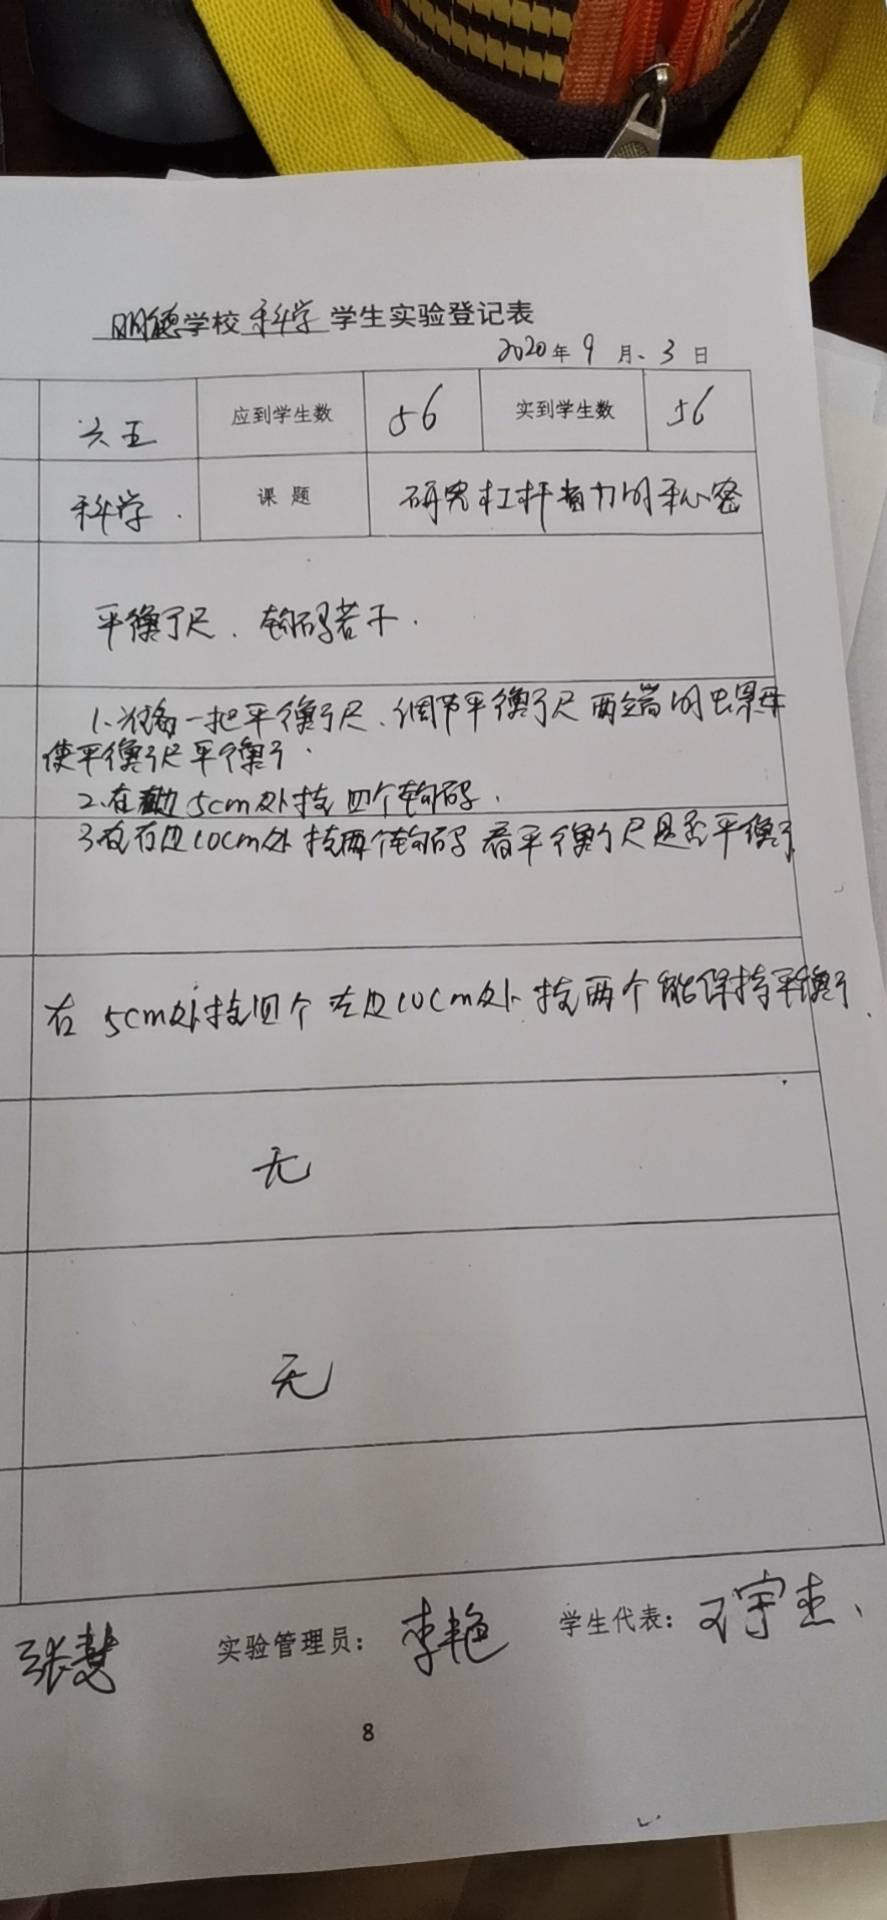 明德学校科学学生实验登记表
2020年9月3日
六五 应到学生数 56 实到学生数 56
科学 课题 研究杠杆省力的秘密
平衡尺、钩码若干.
1.准备一把平衡尺、调节平衡尺两端的螺母
使平衡尺平衡.
2.在 边5cm处挂四个钩码.
3.在右边10cm处挂两个钩码看平衡尺是否平衡
在5cm处挂四个 右边10cm处挂两个能保持平衡.
无
无
张慧 实验管理员：李艳 学生代表：王宇杰
8